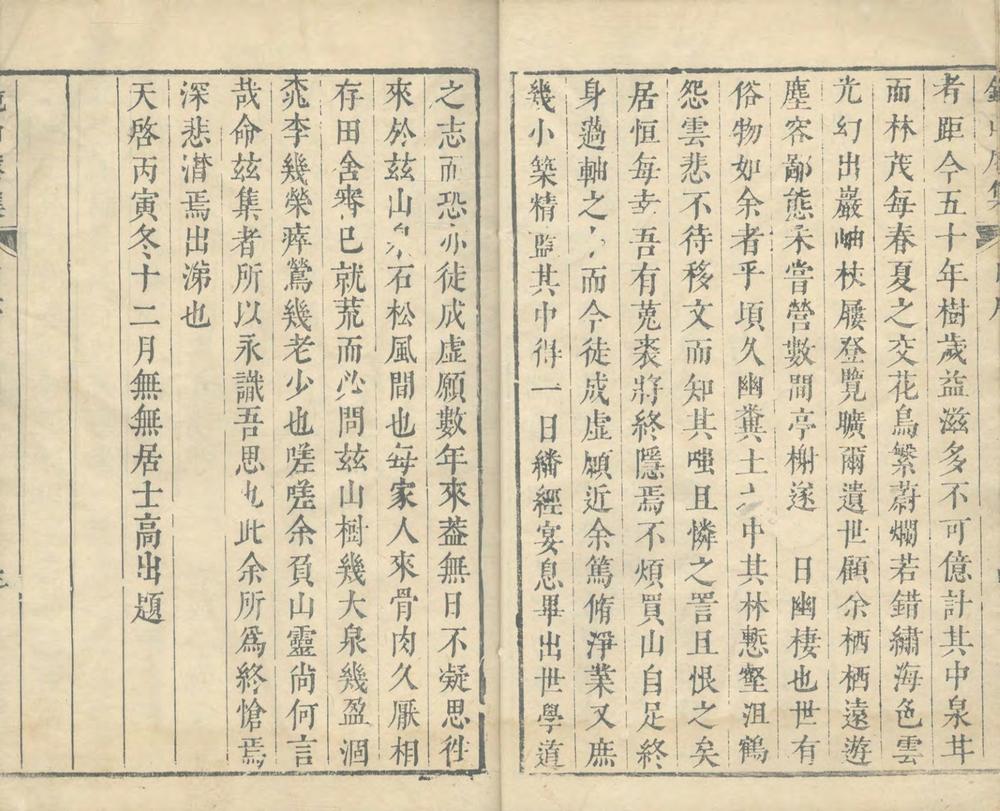 者距今五十年樹歲益滋多不可億計其中泉甘
而林茂每春夏之交花鳥繁蔚爛若錯繡海色雲
光幻出巖岫杖屨登覽曠爾遺世顧余栖栖遠遊
塵容鄙態未嘗營數間亭榭遂 日幽棲也世有
俗物如余者乎頃久幽糞土之中其林慙壑沮鶴
怨雲悲不待移文而知其嗤且憐之詈且恨之矣
居恒每幸吾有菟裘將終隱焉不煩買山自足終
身薖軸之 而今徒成虛願近余篤脩淨業又庶
幾小築精藍其中得一日繙經宴息畢出世學道
之志而恐亦徒成虛願數年來葢無日不凝思徃
來於玆山泉石松風間也每家人來骨肉久厭相
存田舍 已就荒而必問玆山樹幾大泉幾盈涸
桃李幾榮瘁鶯幾老少也嗟嗟余負山靈尙何言
哉命玆集者所以永識吾思也此余所爲終愴焉
深悲潸焉出涕也
天啓丙寅冬十二月無無居士高出題